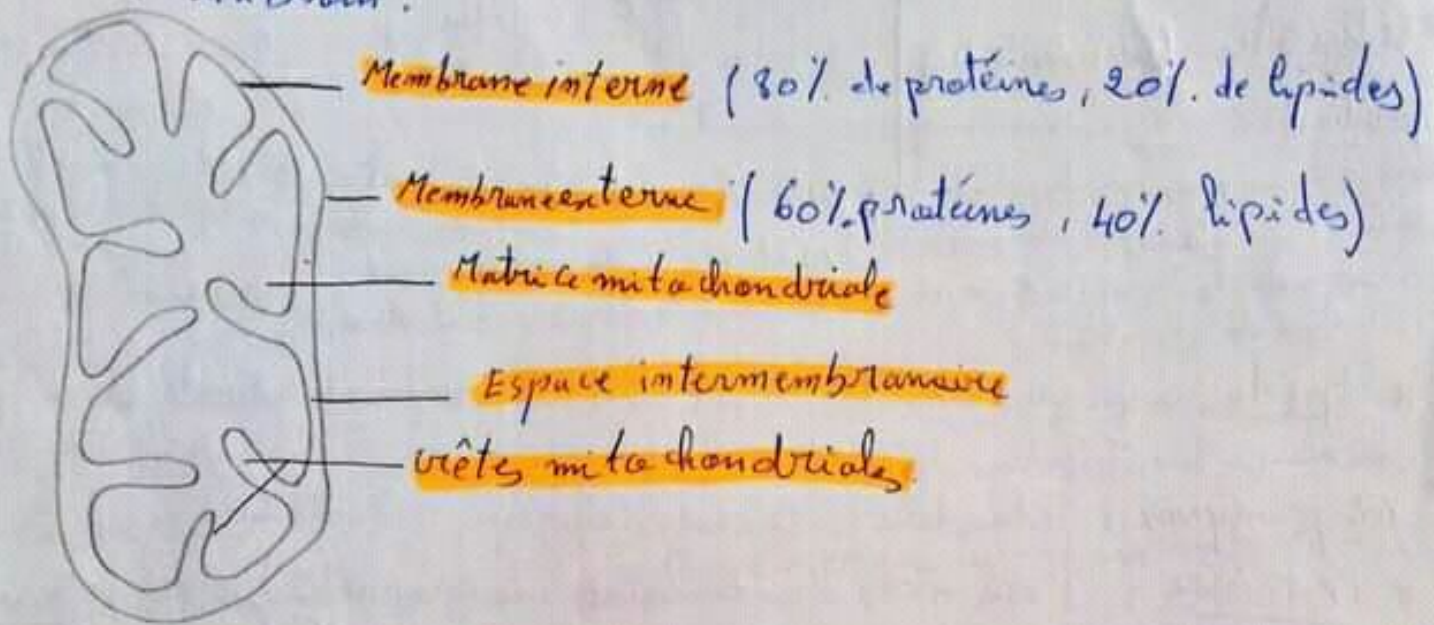 Membrane interne (80% de protéines, 20% de lipides)
Membrane externe (60% protéines, 40% lipides)
Matrice mitochondriale
Espace intermembranaire
crêtes mitochondriales